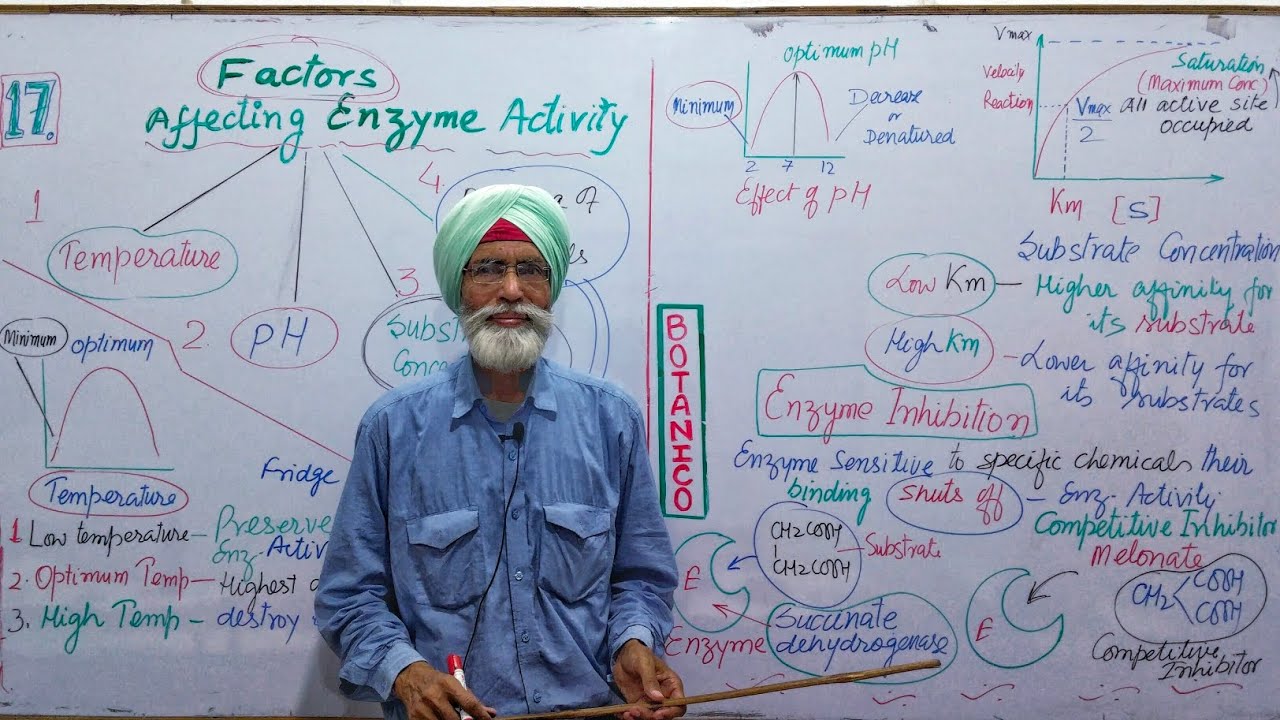 17.
Factors
Affecting Enzyme Activity
1
Temperature
2.
pH
3
Subst
Conce
4.
Of
Minimum
optimum
Temperature
Fridge
1 Low temperature – Preserve
Enz. Activi
2. Optimum Temp – Highest
3. High Temp – destroy
BOTANICO
Optimum pH
Minimum
Decrease
or
Denatured
2 7 12
Effect of pH
Vmax
Velocity
Reaction
Vmax
2
Saturation
(Maximum Conc)
All active site
occupied
Km [S]
Substrate Concentration
Low Km – Higher affinity for
its substrate
High Km – Lower affinity for
its substrates
Enzyme Inhibition
Enzyme Sensitive to specific chemicals their
binding shuts off – Enz. Activity
Competitive Inhibitor
Melonate
CH2COOH
CH2COOH
Substrate
E
Enzyme
Succinate
dehydrogenase
E
CH2
COOH
COOH
Competitive
Inhibitor